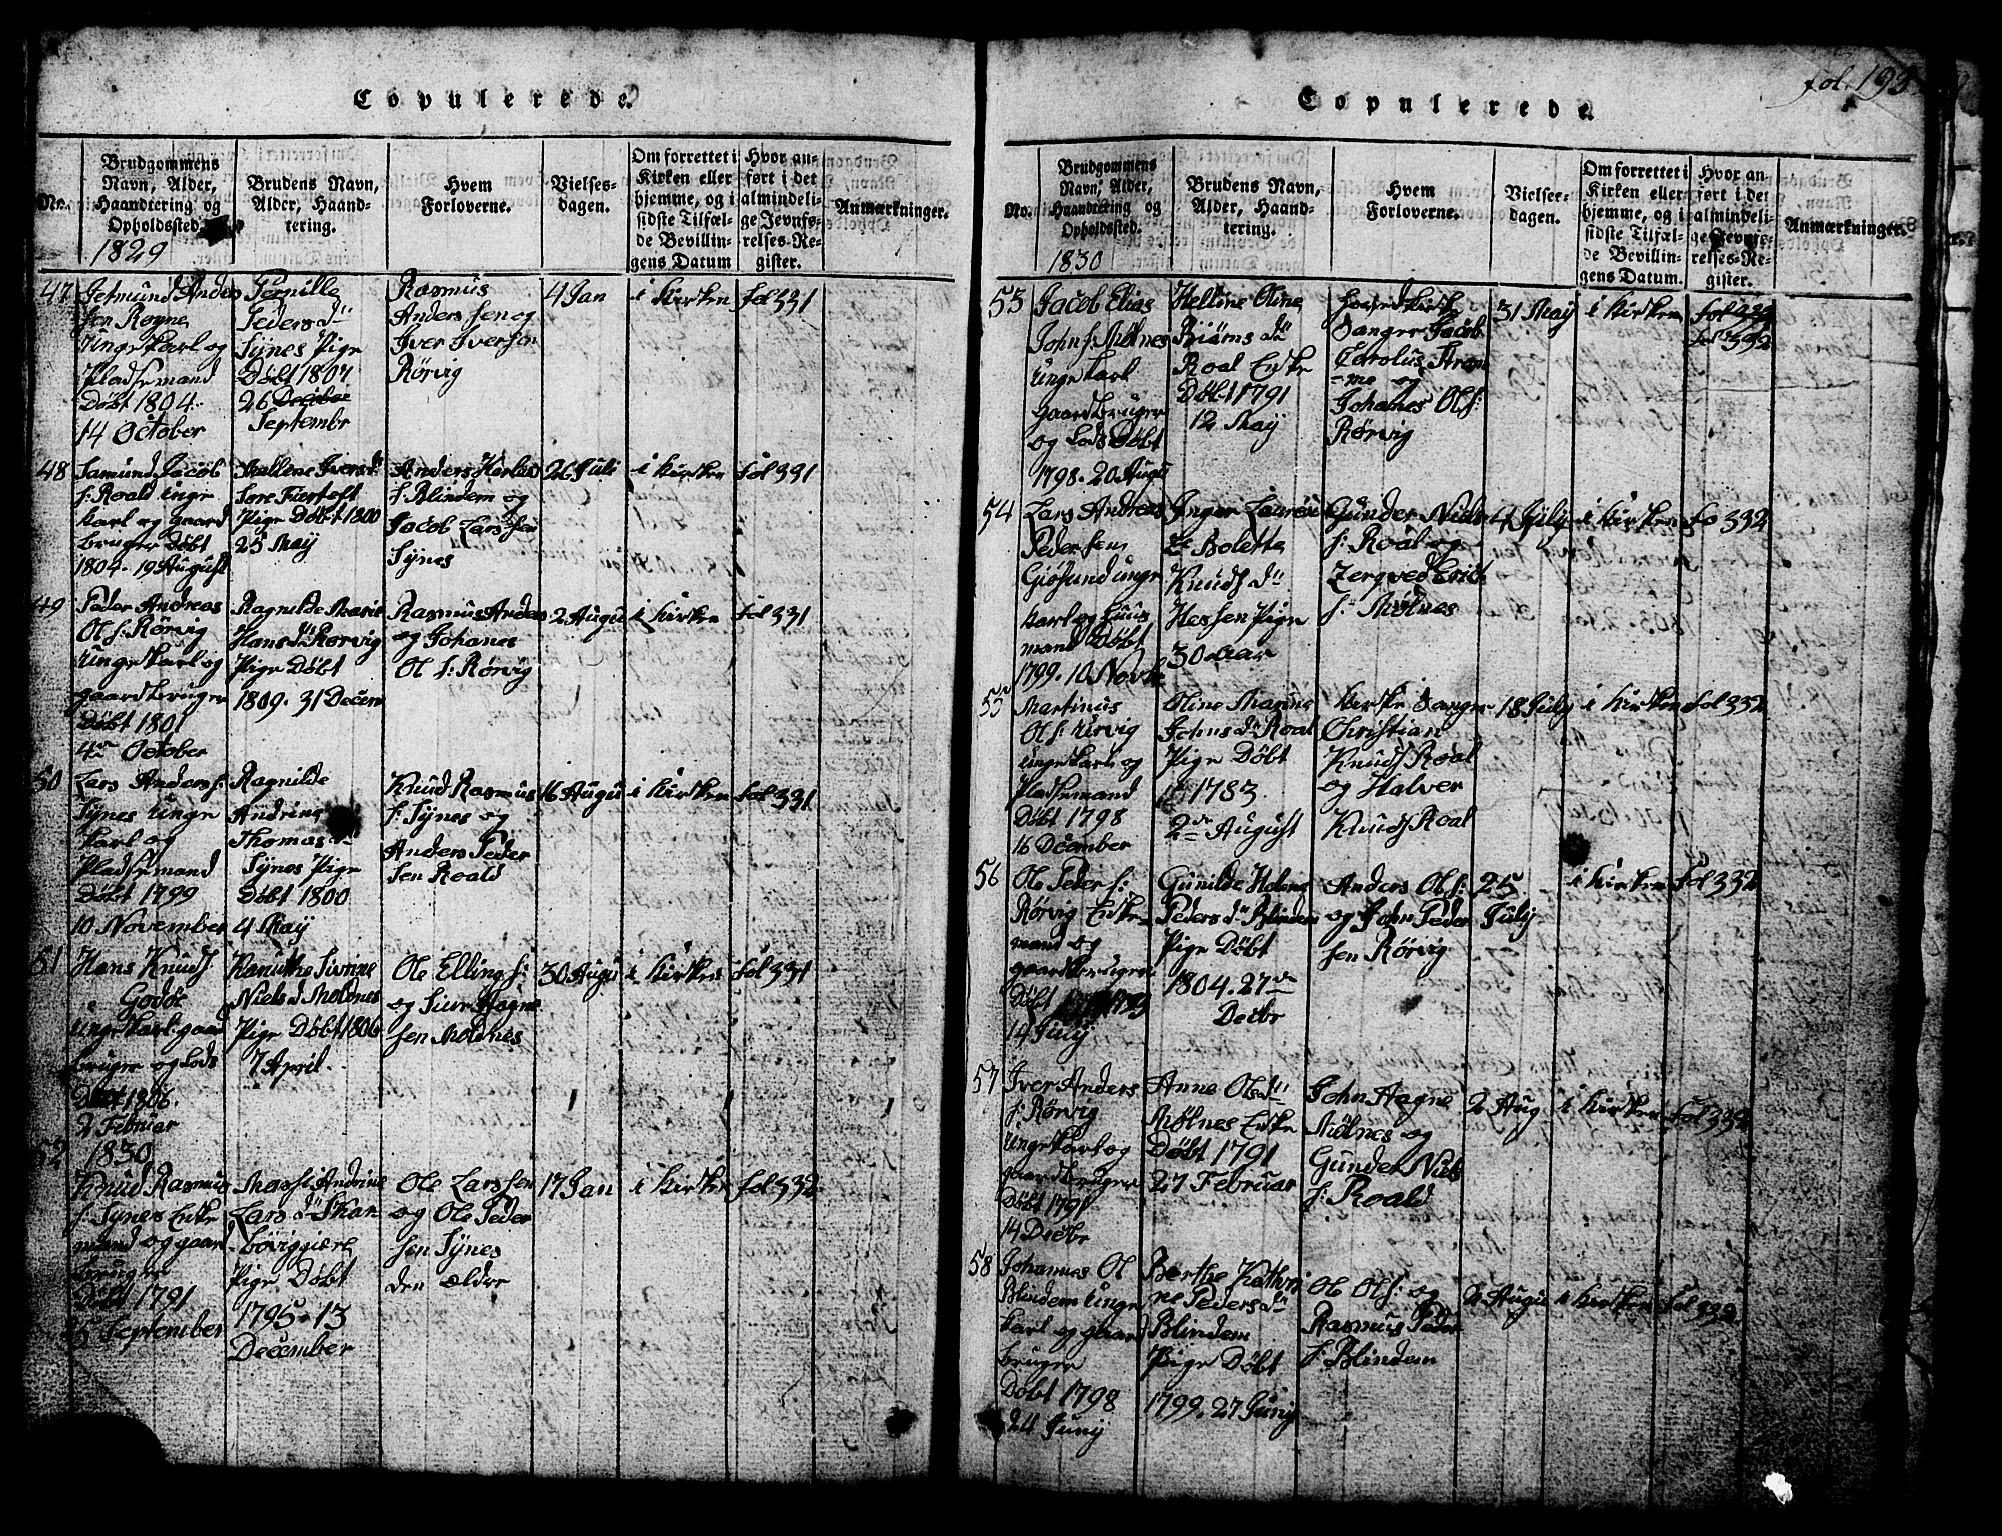 fol. 193
Copulerede.
No.
Brudgommens
Navn, Alder,
Haandtering og
Opholdssted.
1829
Brudens Navn,
Alder, Haand-
tering.
Hvem
Forloverne.
Vielses-
dagen.
Om forrettet i
Kirken eller
hjemme, og i
sidste Tilfæl-
de Bevillin-
gens Datum
Hvor an-
ført i det
almindeli-
ge Jevnfø-
relses-Re-
gister.
Anmærkninger.
47
Jetmund Anders
sen Rogne
Ungekarl og
Pladsemand
Døbt 1804
14 October
Pernille
Peders dr
Synes Pige
Døbt 1807
26 December
Septembr
Rasmus
Anders sen og
Iver Iversen
Rørvig
4 Jan
i Kirken
fol 331
48
Samund Jacob
s: Roald unge
karl og gaard
bruger Døbt
1804 - 19 August
Mallene Ivers dr
Søre Fiertoft
Pige Døbt 1800
25 May
Anders Herlus
s: Blindem og
Jacob Lars sen
Synes
26 Juli
i Kirken
fol 331
49
Peder Andreas
Ol s: Rørvig
Ungekarl og
gaardbruger
Døbt 1801
4de October
Ragnilde Marie
Hans dr Rørvig
Pige Døbt
1809. 31 Decem
Rasmus Anders
og Johanes
Ol s: Rørvig
2 Augu
i Kirken
fol 331
50
Lars Anders s:
Synes Unge
karl og
Pladsemand
Døbt 1799
10 November
Ragnilde
Andrine
Thomas dr
Synes Pige
Døbt 1800
4 May
Knud Rasmus
s: Synes og
Anders Peder
sen Roald
16 Augu
i Kirken
fol 331
51
Hans Knud s:
Godøe
Ungekarl gaard
bruger og Lods
Døbt 1806.
2 Februar
Niels d Molnes
Pige Døbt 1806
7 April.
Ole Elling s:
og Siur Hagne
sen Molnes
30 Augu
i Kirken
fol 331
52
1830
Knud Rasmus
s: Synes Enke
mand og gaar
bruger
Døbt 1791
September
Massi Andrine
Lars dr Skar
Pige Døbt
1795 - 13
December
Ole Lars sen
og Ole Peder
sen Synes
den ældre
17 Jan
i Kirken
fol 332
Copulerede.
No.
Brudgommens
Navn, Alder,
Haandtering og
Opholdssted.
1830
Brudens Navn,
Alder, Haand-
tering.
Hvem
Forloverne.
Vielses-
dagen.
Om forrettet i
Kirken eller
hjemme, og i
sidste Tilfæl-
de Bevillin-
gens Datum.
Hvor an-
ført i det
almindeli-
ge Jevnfø-
relses-Re-
gister.
Anmærkninger.
53
Jacob Elias
John s: Mølnes
Ungekarl
gaardbruger
og Lods Døbt
1798. 20 Augu
Helline Oline
Biørns dr
Roal Enke
Døbt 1791
12 May
Sanger Jacob
Carolus Strøm
me og
Johanes Ol s:
Rørvig
31 May
i Kirken
fol 332
54
Lars Andreas
Peder sen
Giøsund unge
karl og Huus
mand Døbt
1799. 10 Novbr
Inger Lauren
Boletta
Knuds dr
Hessen Pige
30 aar
Gunder Niels
s: Roal og
s: Mølnes
4 July
i Kirken
fo 332
55
Martinus
Ol s: Urvig
ungekarl og
Pladsemand
Døbt 1798
16 December
Oline Marine
Johns dr Roal
Pige Døbt
1783.
2de August
Kirke Sanger
Christian
Knuds Roal
og Halver
Knuds Roal
18 July
i Kirken
fol 332
56
Ole Peder s:
Rørvig Enke
mand og
gaardbruger
Døbt
14 July
Gunilde Helene
Peders dr Blindem
Pige Døbt
1804. 27de
Decbr
Anders Ol s:
og John Peder
sen Rørvig
25
July
i Kirken
fol 332
57
Iver Anders
s: Rørvig
Ungekarl og
gaardbruger
Døbt 1791
14 Decbr
Anne Ols dr
Mølnes Enke
Døbt 1791
27 Februar
John Hagne
Mølnes og
Gunder Niels
s: Roald
2 Aug
i Kirken
fol 332
58
Johannes Ol
Blindem Unge
karl og gaard
bruger
Døbt 1798
24 Juny
Berthe Kathri
ne Peders dr
Blindem
Pige Døbt
1799. 27 Juny
Ole Ol s: og
Rasmus Peder
s: Blindem
2 Augu
i Kirken
fol 332